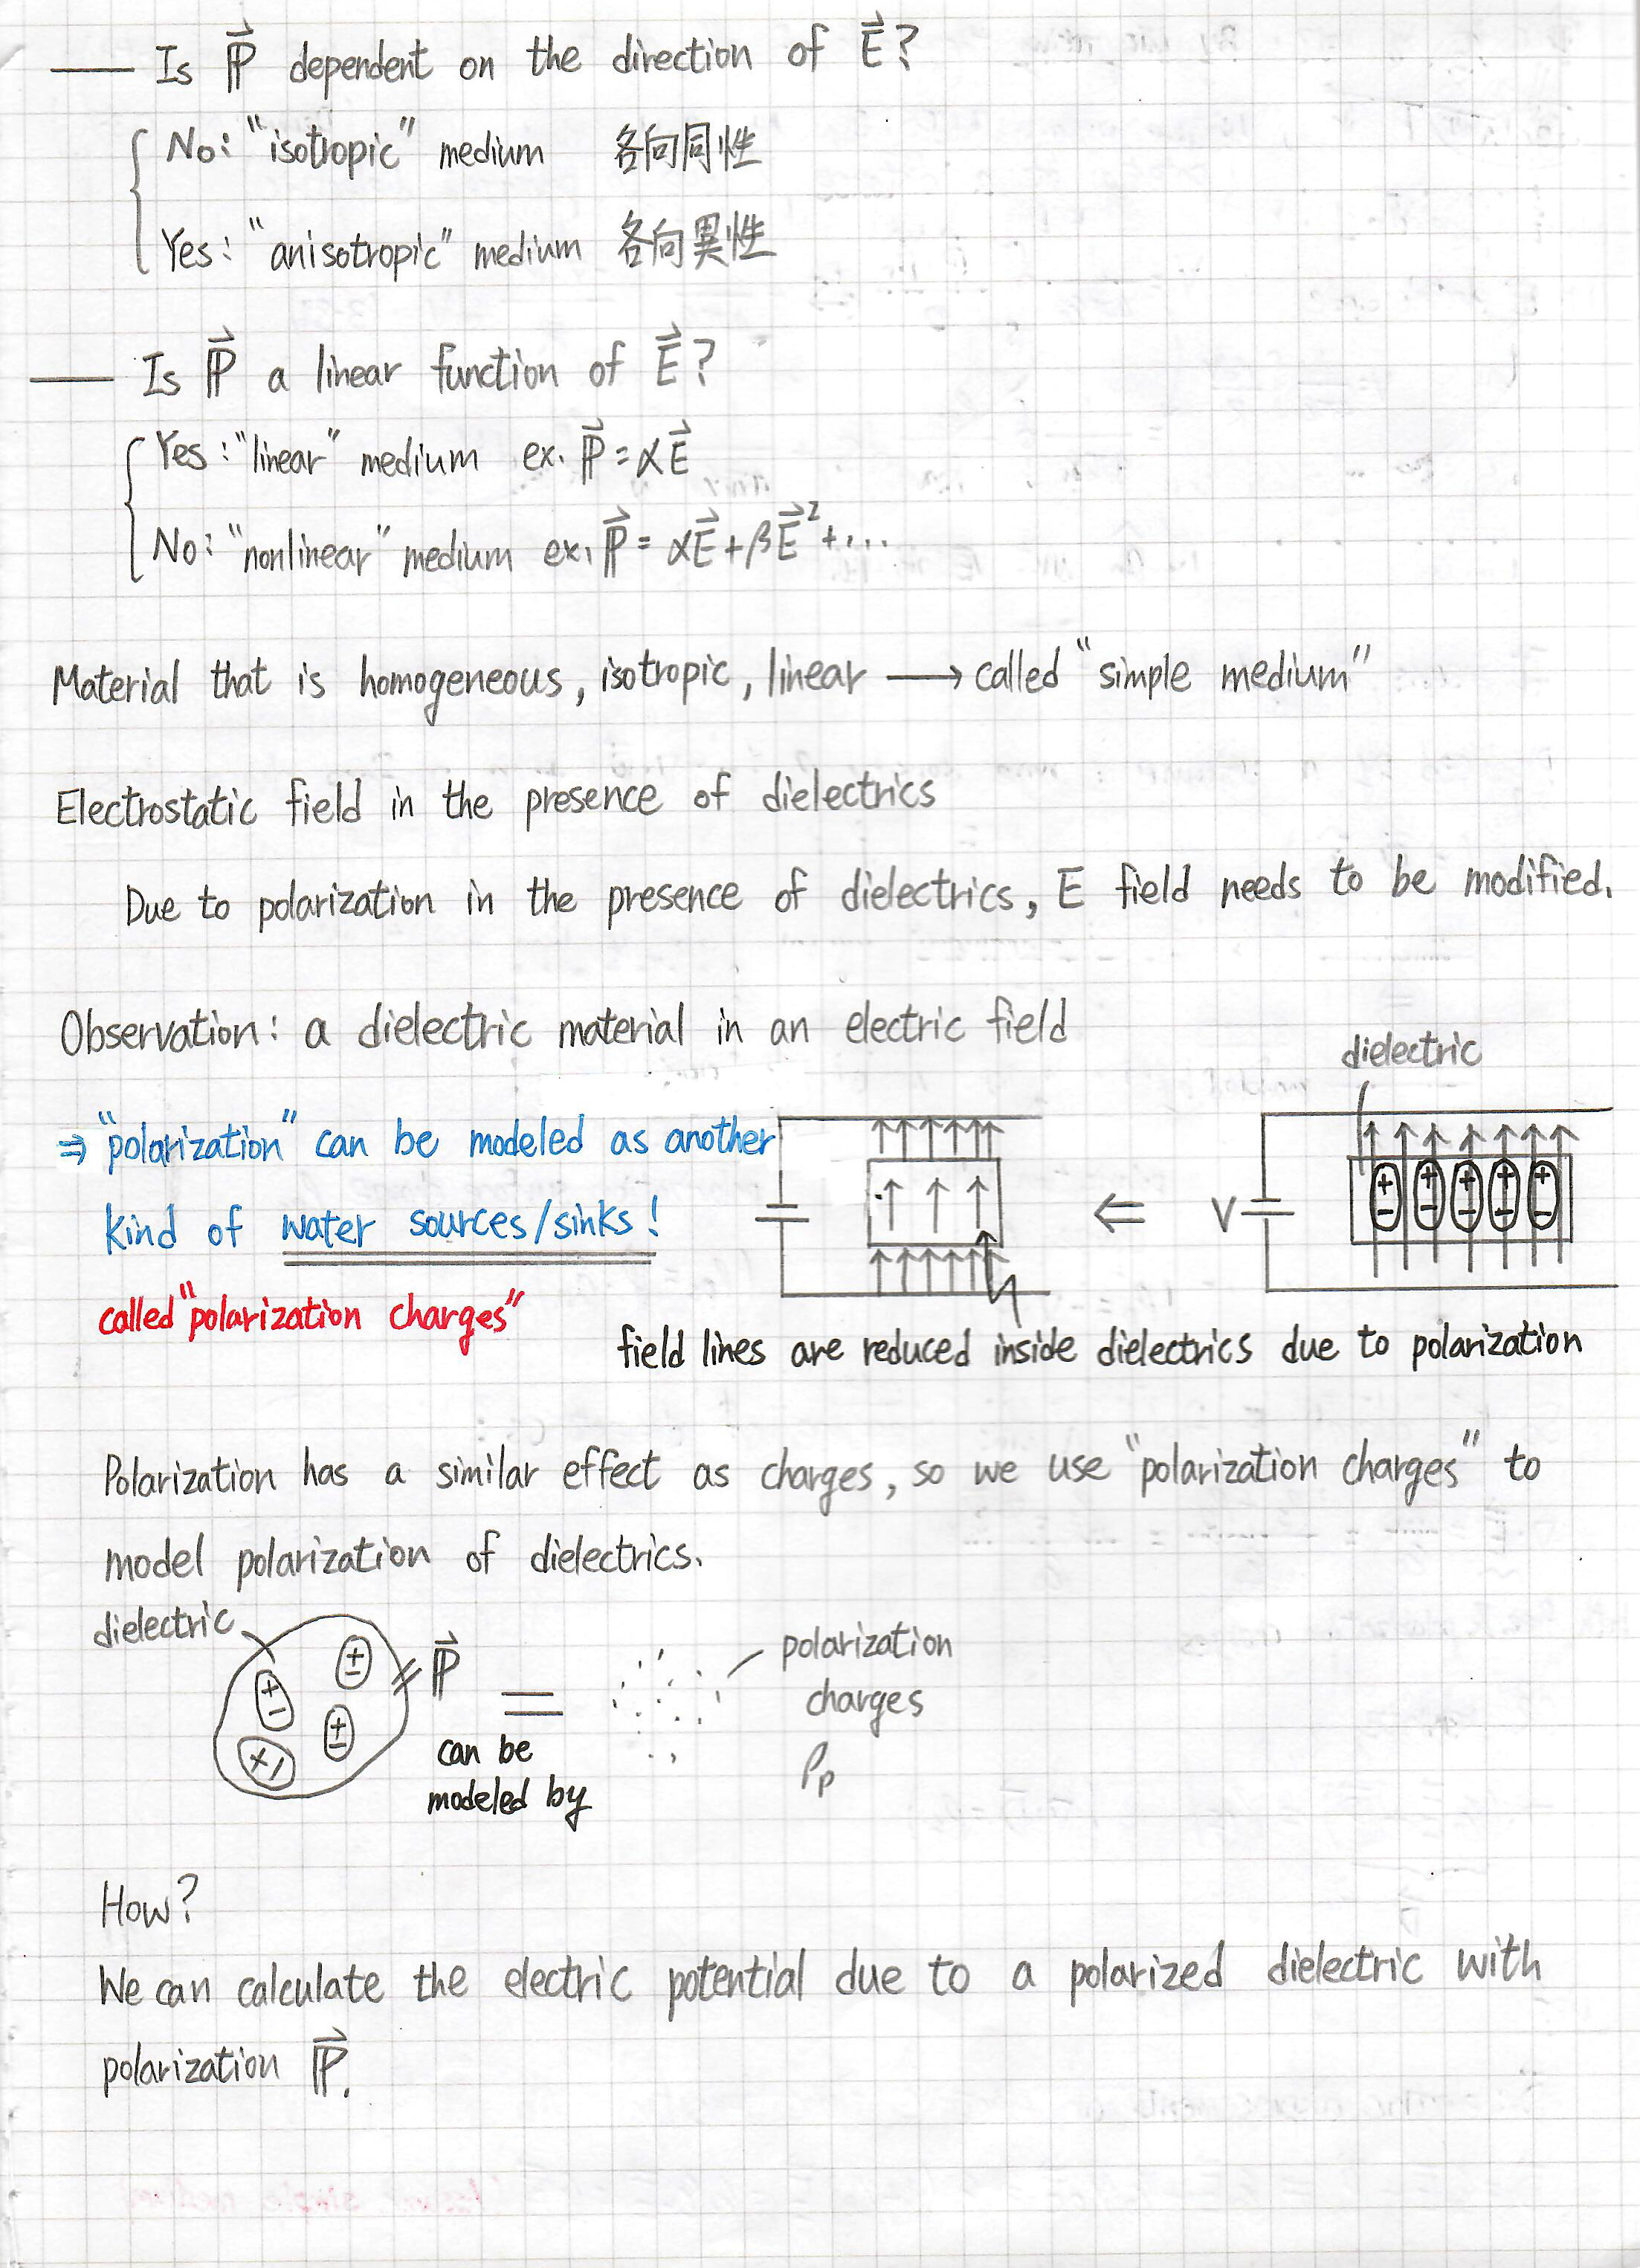 — Is P⃗ dependent on the direction of E⃗?
No: "isotropic" medium 各向同性
Yes: "anisotropic" medium 各向異性
— Is P⃗ a linear function of E⃗?
Yes: "linear" medium ex. P⃗ = αE⃗
No: "nonlinear" medium ex. P⃗ = αE⃗ + βE⃗² + ...
Material that is homogeneous, isotropic, linear ⟶ called "simple medium"
Electrostatic field in the presence of dielectrics
Due to polarization in the presence of dielectrics, E field needs to be modified.
Observation: a dielectric material in an electric field
dielectric
⇒ "polarization" can be modeled as another
kind of water sources/sinks!
called "polarization charges"
⇐ V
+ + + + +
− − − − −
field lines are reduced inside dielectrics due to polarization
Polarization has a similar effect as charges, so we use "polarization charges" to
model polarization of dielectrics.
dielectric
+ − + − + − + −
P⃗ =
can be
modeled by
polarization
charges
ρp
How?
We can calculate the electric potential due to a polarized dielectric with
polarization P⃗.